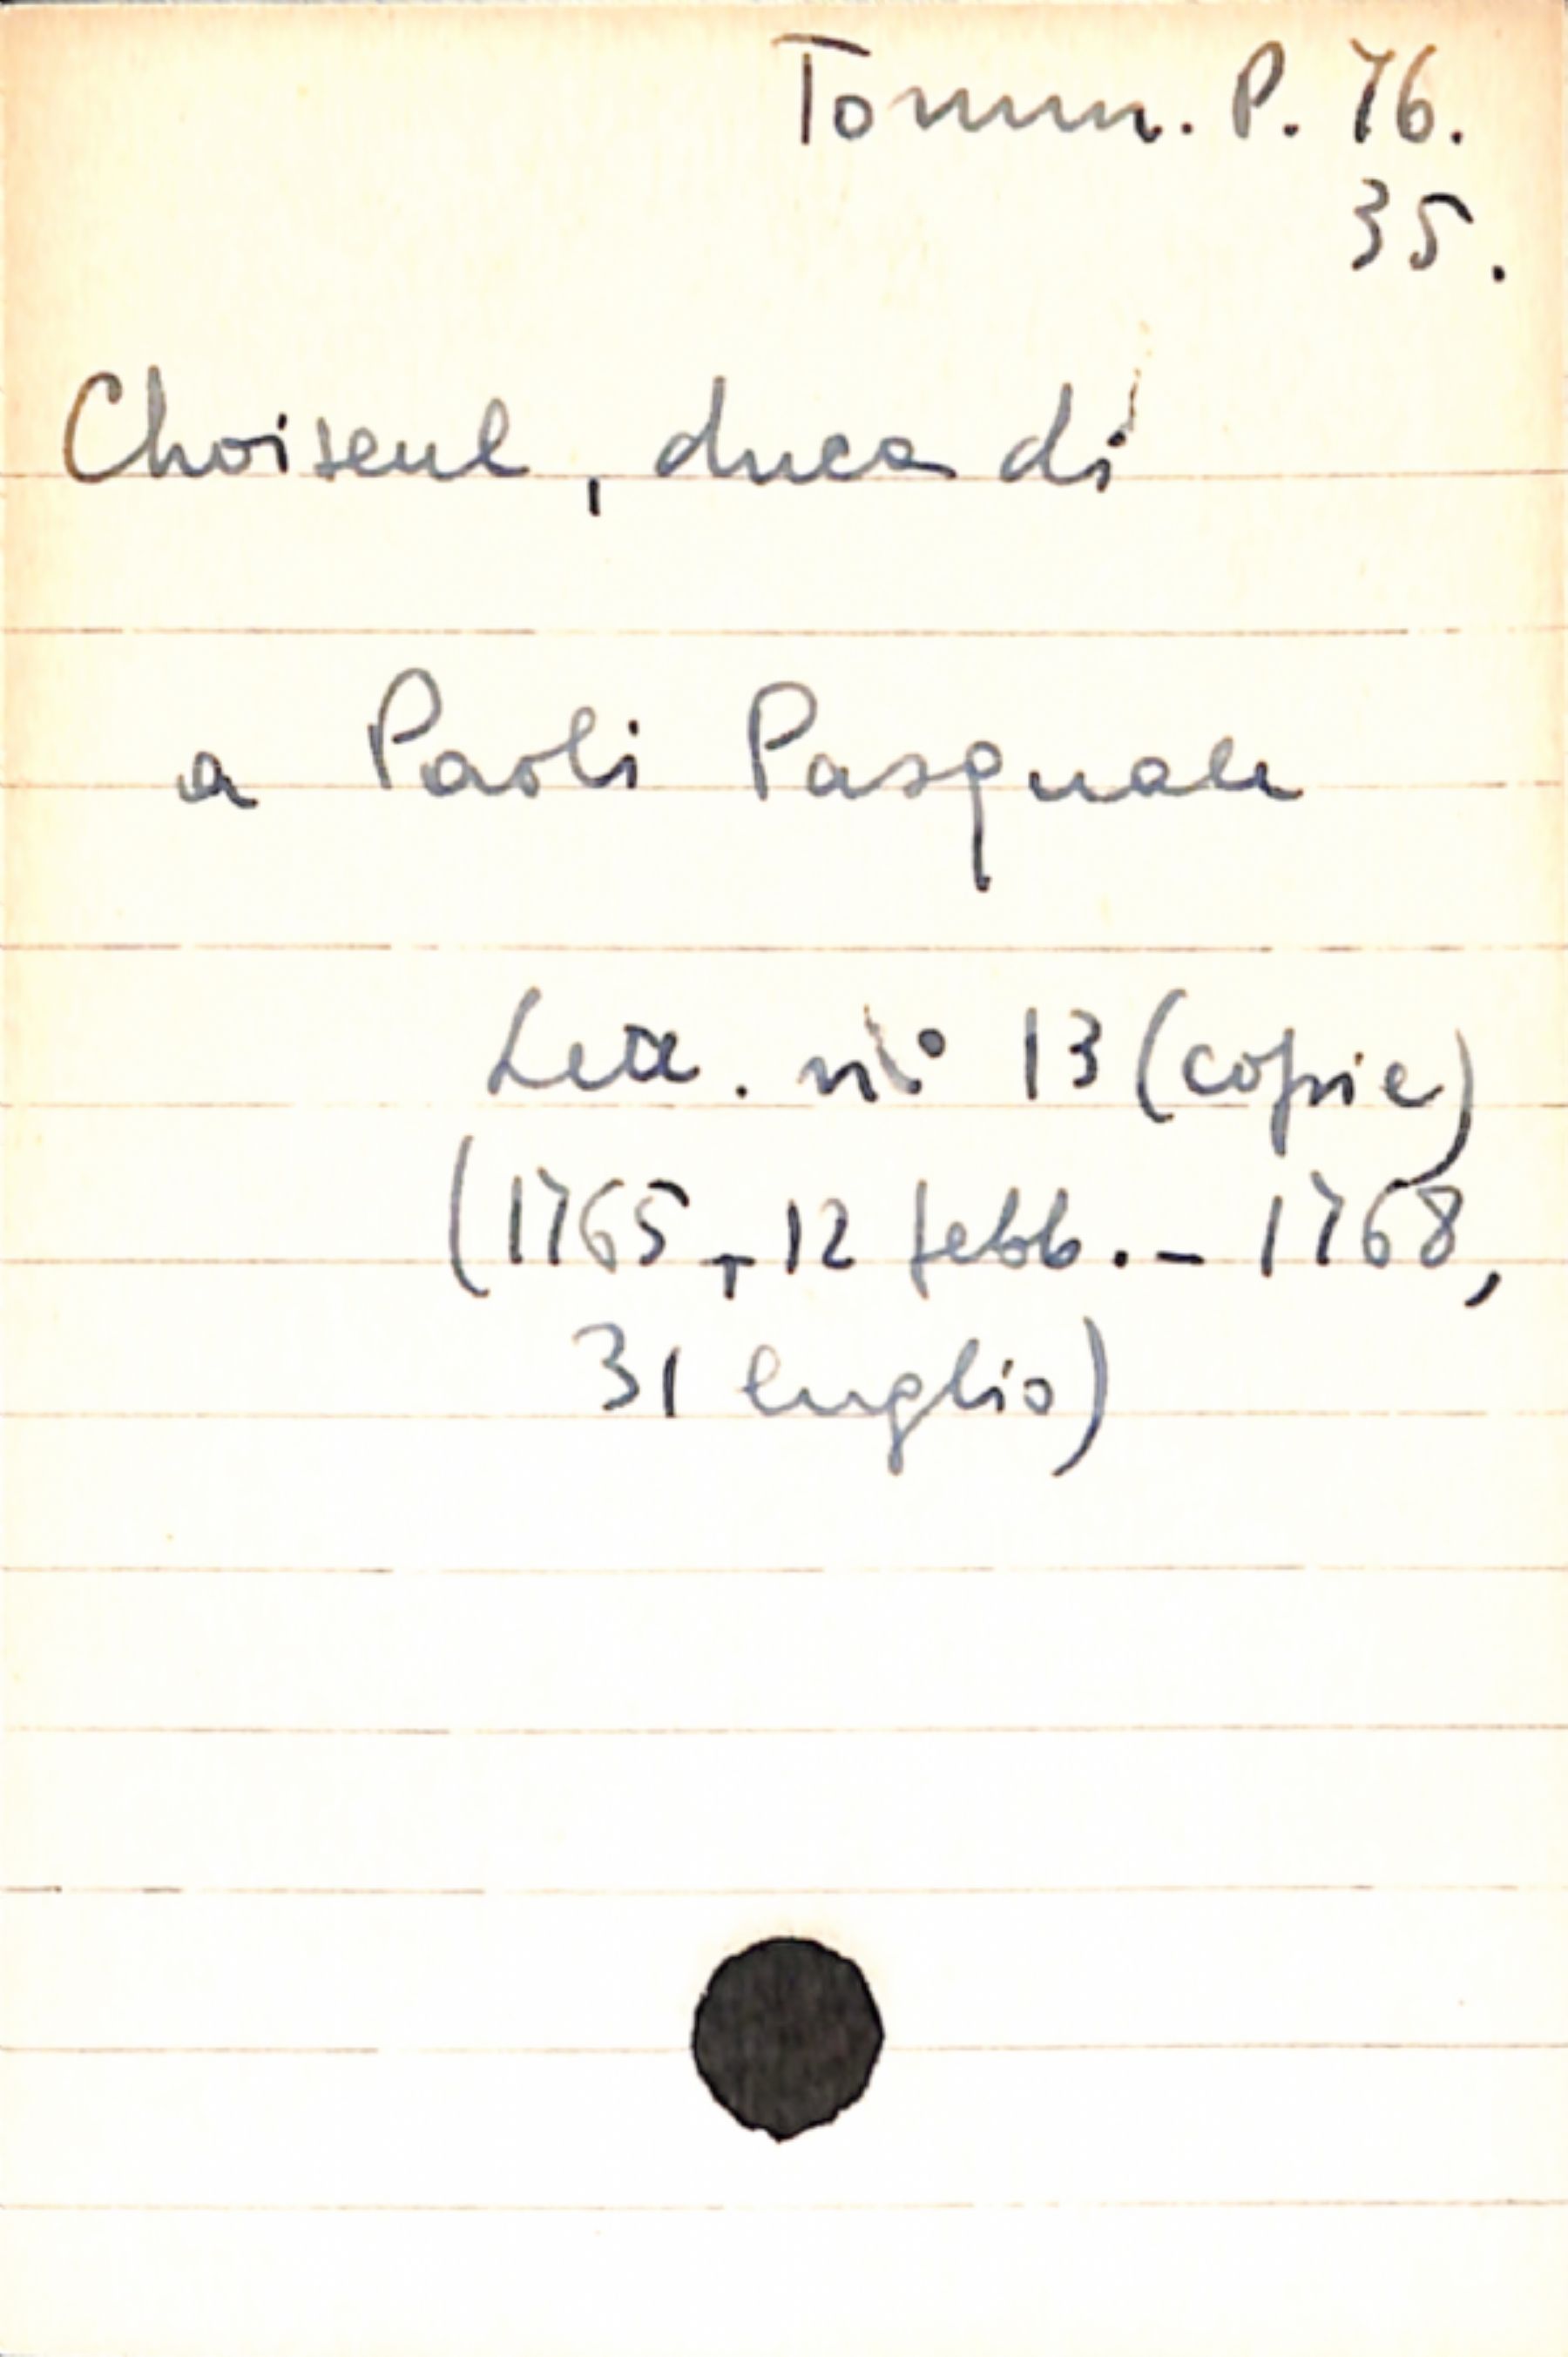 Tomm. P. 76.
35.
Choiseul, duca di
a Paoli Pasquale
Lett. n° 13 (copie)
(1765, 12 febb. - 1768,
31 luglio)